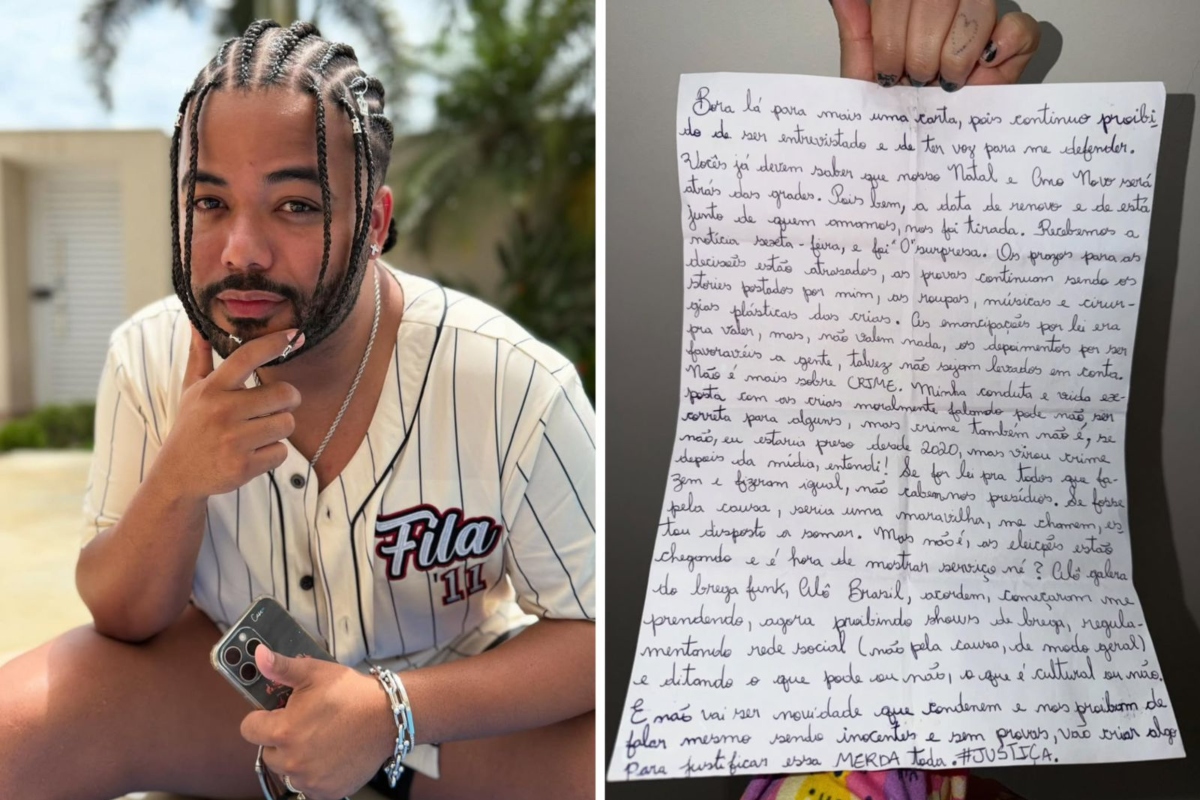 Fila
'11
Bora lá para mais uma carta, pois continuo proibi-
do de ser entrevistado e de ter voz para me defender.
Vocês já devem saber que nosso Natal e Ano Novo será
atrás das grades. Pois bem, a data de renovo e de está
junto de quem amamos, nos foi tirada. Recebemos a
notícia sexta-feira, e foi "O" surpresa. Os prazos para as
decisões estão atrasados, as provas continuam sendo os
stories postados por mim, as roupas, músicas e cirur-
gias plásticas das crias. As emancipações por lei era
pra valer, mas, não valem nada, os depoimentos por ser
favoravéis a gente, talvez não sejam levados em conta.
Não é mais sobre CRIME. Minha conduta e vida ex-
posta com as crias moralmente falando pode não ser
correta para alguns, mas crime também não é, se
não, eu estaria preso desde 2020, mas virou crime
depois da mídia, entendi! Se for lei pra todos que fa-
zem e fizeram igual, não cabem nos presídios. Se fosse
pela causa, seria uma maravilha, me chamem, es-
tou disposto a somar. Mas não é, as eleições estão
chegando e é hora de mostrar serviço né? Alô galera
do brega funk, Alô Brasil, acordem, começaram me
prendendo, agora proibindo shows de brega, regula-
mentando rede social (não pela causa, de modo geral)
e ditando o que pode ou não, o que é cultural ou não.
E não vai ser novidade que condenem e nos proibam de
falar mesmo sendo inocentes e sem provas, vão criar algo
para justificar essa MERDA toda. #JUSTIÇA.